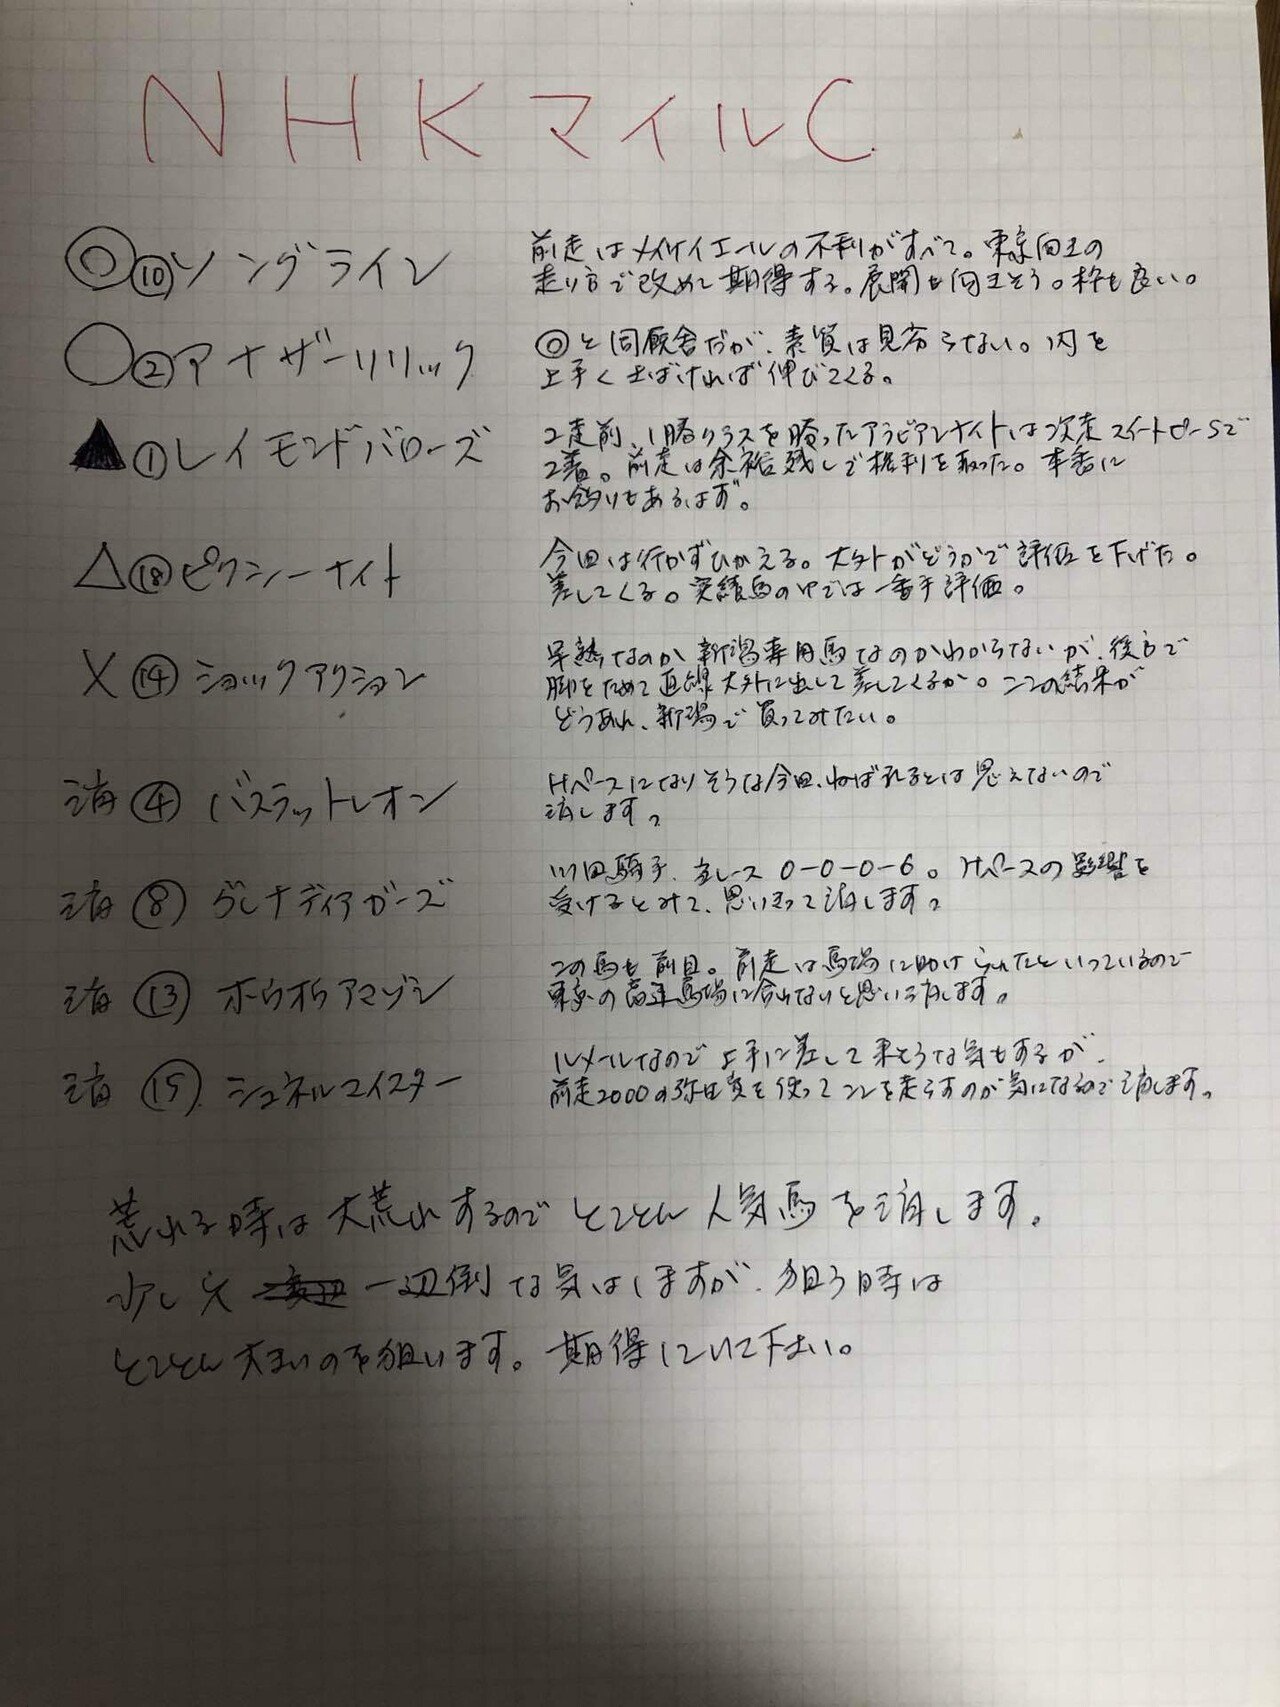 NHKマイルC
◎⑩ソングライン
前走はメイケイエールの不利がすべて。東京向きの
走り方で改めて期待する。展開も向きそう。枠も良い。
○②アナザーリリック
◎と同厩舎だが、素質は見劣らない。内を
上手くさばければ伸びてくる。
▲①レイモンドバローズ
2走前、1勝クラスを勝ったアラビアンナイトは次走スイートピーSで
2着。前走は余裕残しで権利を取った。本番に
お釣りもあるはず。
△⑱ピクシーナイト
今回は行かずひかえる。大外がどうかで評価を下げた。
差してくる。実績馬の中では一番手評価。
X⑭ショックアクション
早熟なのか新潟専用馬なのかわからないが、後方で
脚をためて直線大外に出して差してくるか。ここの結果が
どうあれ、新潟で買ってみたい。
消④バスラットレオン
Hペースになりそうな今回、ねばれるとは思えないので
消します。
消⑧グレナディアガーズ
川田騎手、当レース0-0-0-6。Hペースの影響を
受けるとみて、思い切って消します。
消⑬ホウオウアマゾン
この馬も前目。前走は馬場に助けられたといっているので
東京の高速馬場に合わないと思い消します。
消⑮シュネルマイスター
ルメールなので上手に差して来そうな気もするが、
前走2000の弥生賞を使ってここを走らすのが気になるので消します。
荒れる時は大荒れするのでとことん人気馬を消します。
少し穴一辺倒な気はしますが、狙う時は
とことん大きいのを狙います。期待していて下さい。